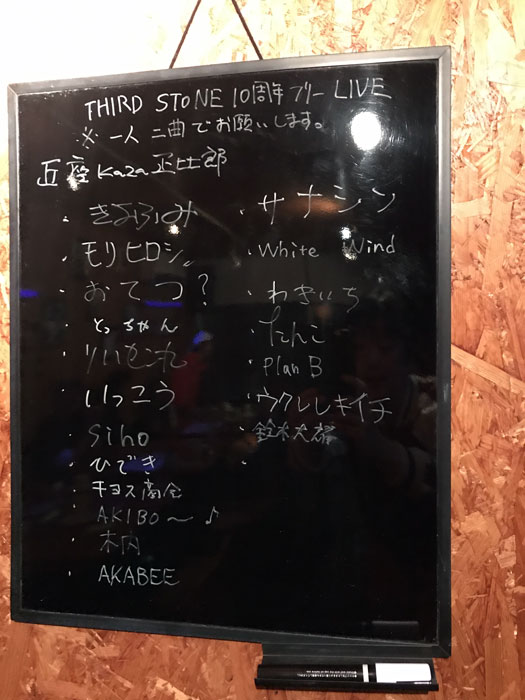 THIRD STONE 10周年フリーLIVE
※ 一人 二曲でお願いします。
丘座 Kaza 正比郎
・きよふみ
・モリヒロシ
・おてつ?
・とっちゃん
・りいセン丸
・いっこう
・Siho
・ひでき
・チョス商会
・AKIBO〜♪
・木内
・AKABEE
・サナシン
・White Wind
・わきいち
・たんこ
・Plan B
・ウクレレキイチ
・鈴木大
・